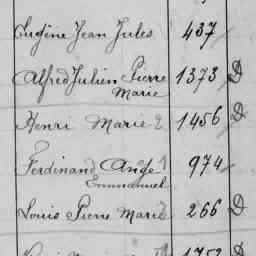 Eugène Jean Jules 437
Alfred Julien Pierre 1373 D
Marie
Henri Marie 2 1456 D
Ferdinand Ange 1 974
Emmanuel
Louis Pierre Marie 2 266 D
1752